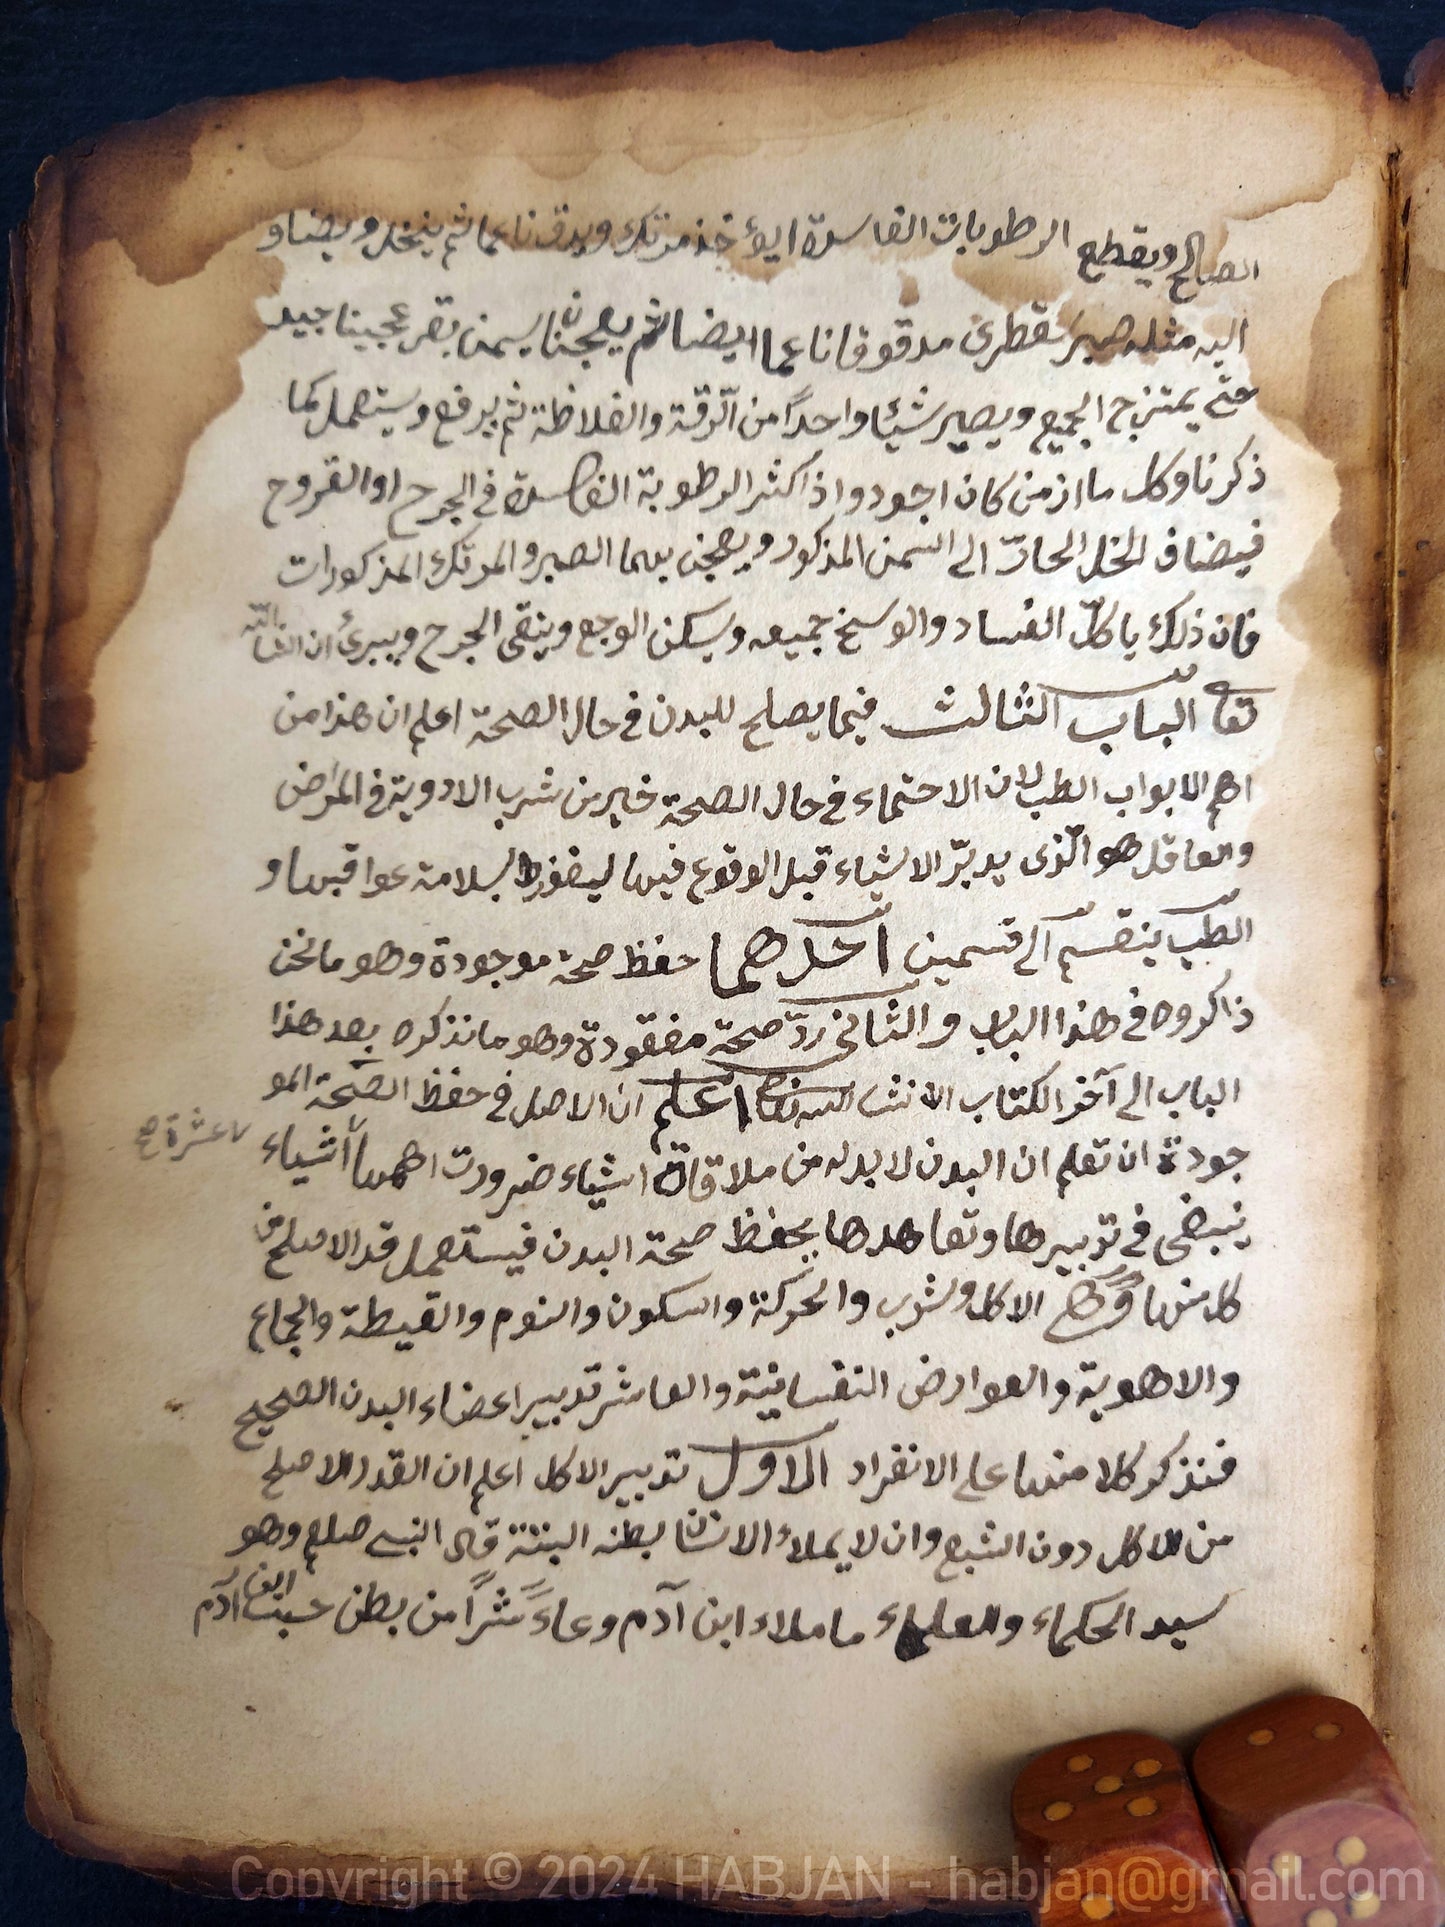 الصالح ويقطع الرطوبات الفاسدة خذ مرتك ويدق ناعما ثم ينخل ويضاف
اليه مثله صبر سقطرى مدقوقا ناعما ايضا ثم يعجنان بسمن بقر عجينا جيد
حتى يمتزج الجميع ويصير شيئا واحداً من الرّقة والغلاظة ثم يرفع ويستعمل كما
ذكرنا وكل ما ازمن كان اجود واذا كثر الرطوبة الفاسدة في الجرح او القروح
فيضاف الخل الحادّ الى السمن المذكور ويعجن بهما الصبر والمرتك المذكورات
فان ذلك ياكلّ الفساد والوسخ جميعه ويسكن الوجع وينقى الجرح ويبرئ ان شا الله
تعا الباب الثالث فيما يصلح للبدن في حال الصحة اعلم ان هذا من
اهم الابواب الطب لان الاحتماء في حال الصحة خير من شرب الادوية في المرض
والعاقل هو الّذى يدبّر الاشياء قبل الوقوع فيها ليفوز بسلامة عواقبها و
الطب ينقسم الى قسمين احدهما حفظ صحة موجودة وهو ما نحن
ذاكروه في هذا الباب والثانى ردّ صحة مفقودة وهو ما نذكره بعد هذا
الباب الى آخر الكتاب ان شا الله تعا اعلم ان الاصل في حفظ الصّحة المو
جودة ان تعلم ان البدن لا بد له من ملاقاة اشياء ضرورت اهمها أشياء
عشرة صح
ينبغى في تدبيرها وتعاهدها بحفظ صحة البدن فيستعمل قد الاصلح من
كل منها وهي الاكل وشرب والحركة والسكون والنوم والقيظة والجماع
والاهوية والعوارض النفسانية والعاشر تدبير اعضاء البدن الصحيح
فنذكر كلا منها على الانفراد الاول تدبير الاكل اعلم ان القدر الاصلح
من الاكل دون الشبع وان لا يملاء الانسان بطنه البتة قال النبى صلعم وهو
سيد الحكماء والعلماء ما ملاء ابن آدم وعاءً شراً من بطن حسب ابن آدم
Copyright © 2024 HABJAN - habjan@gmail.com